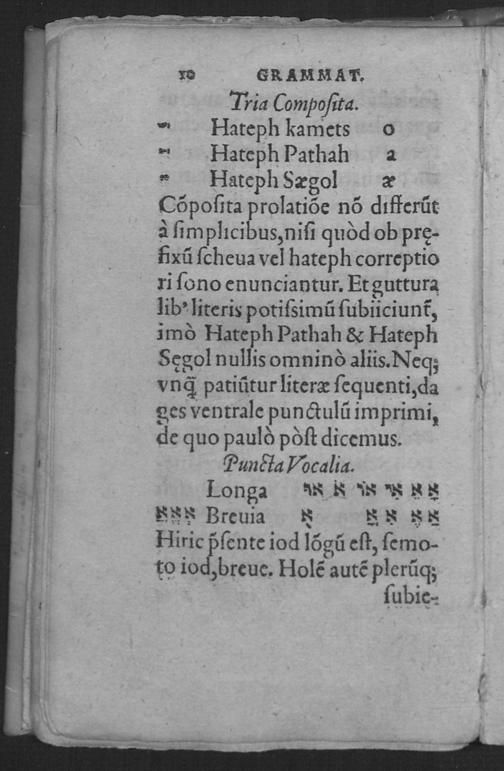 10 GRAMMAT.
Tria Compoſita.
Hateph kamets o
Hateph Pathah a
Hateph Sægol æ
Cõpoſita prolatiõe nõ differũt
à ſimplicibus,niſi quòd ob prę-
fixũ ſcheua vel hateph correptio
ri ſono enunciantur. Et guttura
lib⁹ literis potiſsimũ ſubiiciunt̃,
imò Hateph Pathah & Hateph
Sęgol nullis omninò aliis.Neq;
vnq̃ patiũtur literæ ſequenti,da
ges ventrale punctulũ imprimi,
de quo paulò pòſt dicemus.
Puncta Vocalia.
Longa
Breuia
Hiric p̃ſente iod lõgũ eſt, ſemo-
to iod,breue. Holẽ autẽ plerũq;
ſubie-